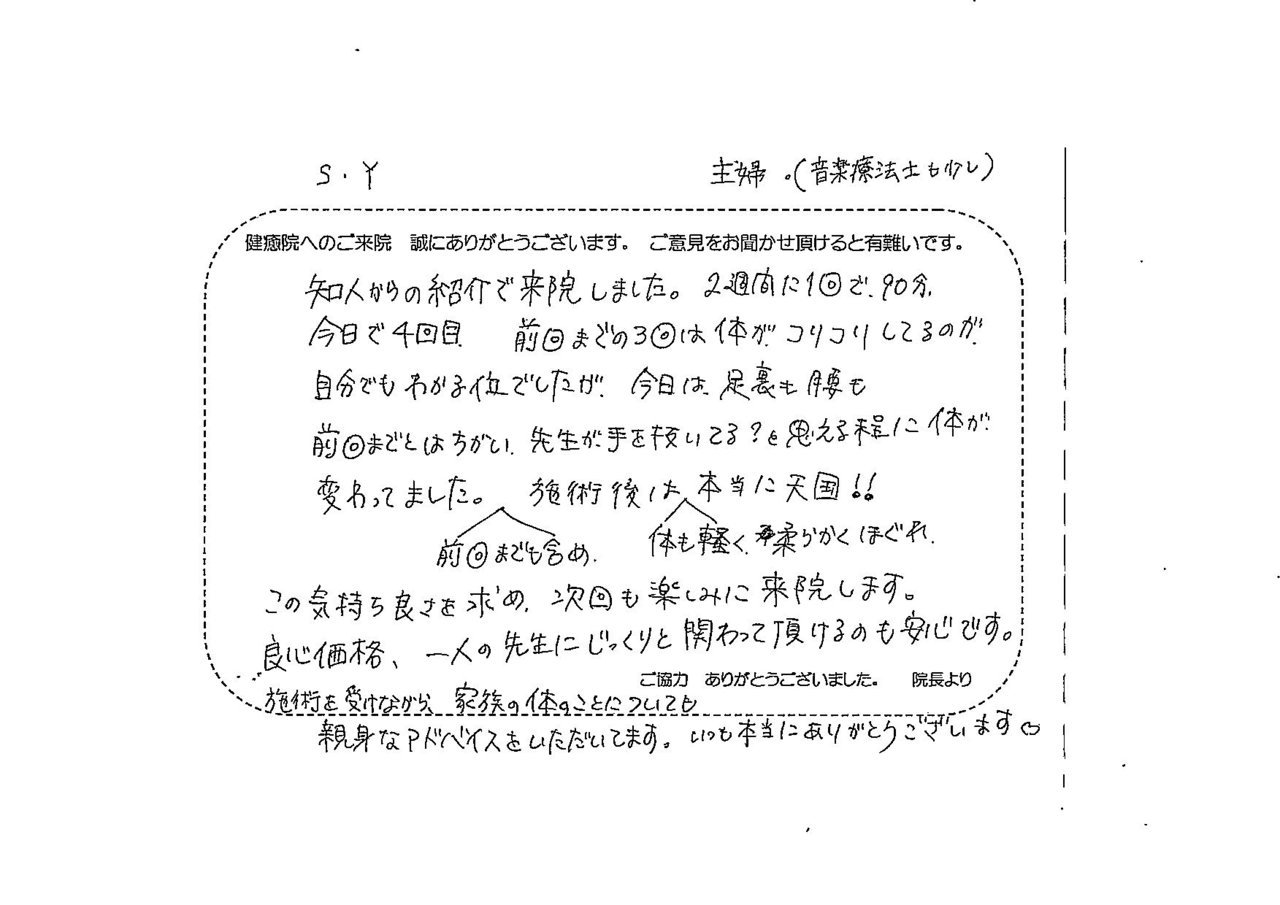 S.Y 主婦.(音楽療法士も少し)
健癒院へのご来院 誠にありがとうございます。 ご意見をお聞かせ頂けると有難いです。
知人からの紹介で来院しました。2週間に1回で、90分、
今日で4回目、 前回までの3回は体がコリコリしてるのが
自分でもわかる位でしたが、今日は、足裏も腰も
前回までとはちがい、先生が手を抜いてる?と思える程に体が
変わってました。 施術後は、本当に天国!!
前回までも含め、 体も軽く、柔らかくほぐれ、
この気持ち良さを求め、次回も楽しみに来院します。
良心価格、一人の先生にじっくりと関わって頂けるのも安心です。
ご協力 ありがとうございました。 院長より
施術を受けながら、家族の体のことについても
親身なアドベイスをいただいてます。いつも本当にありがとうございます♡